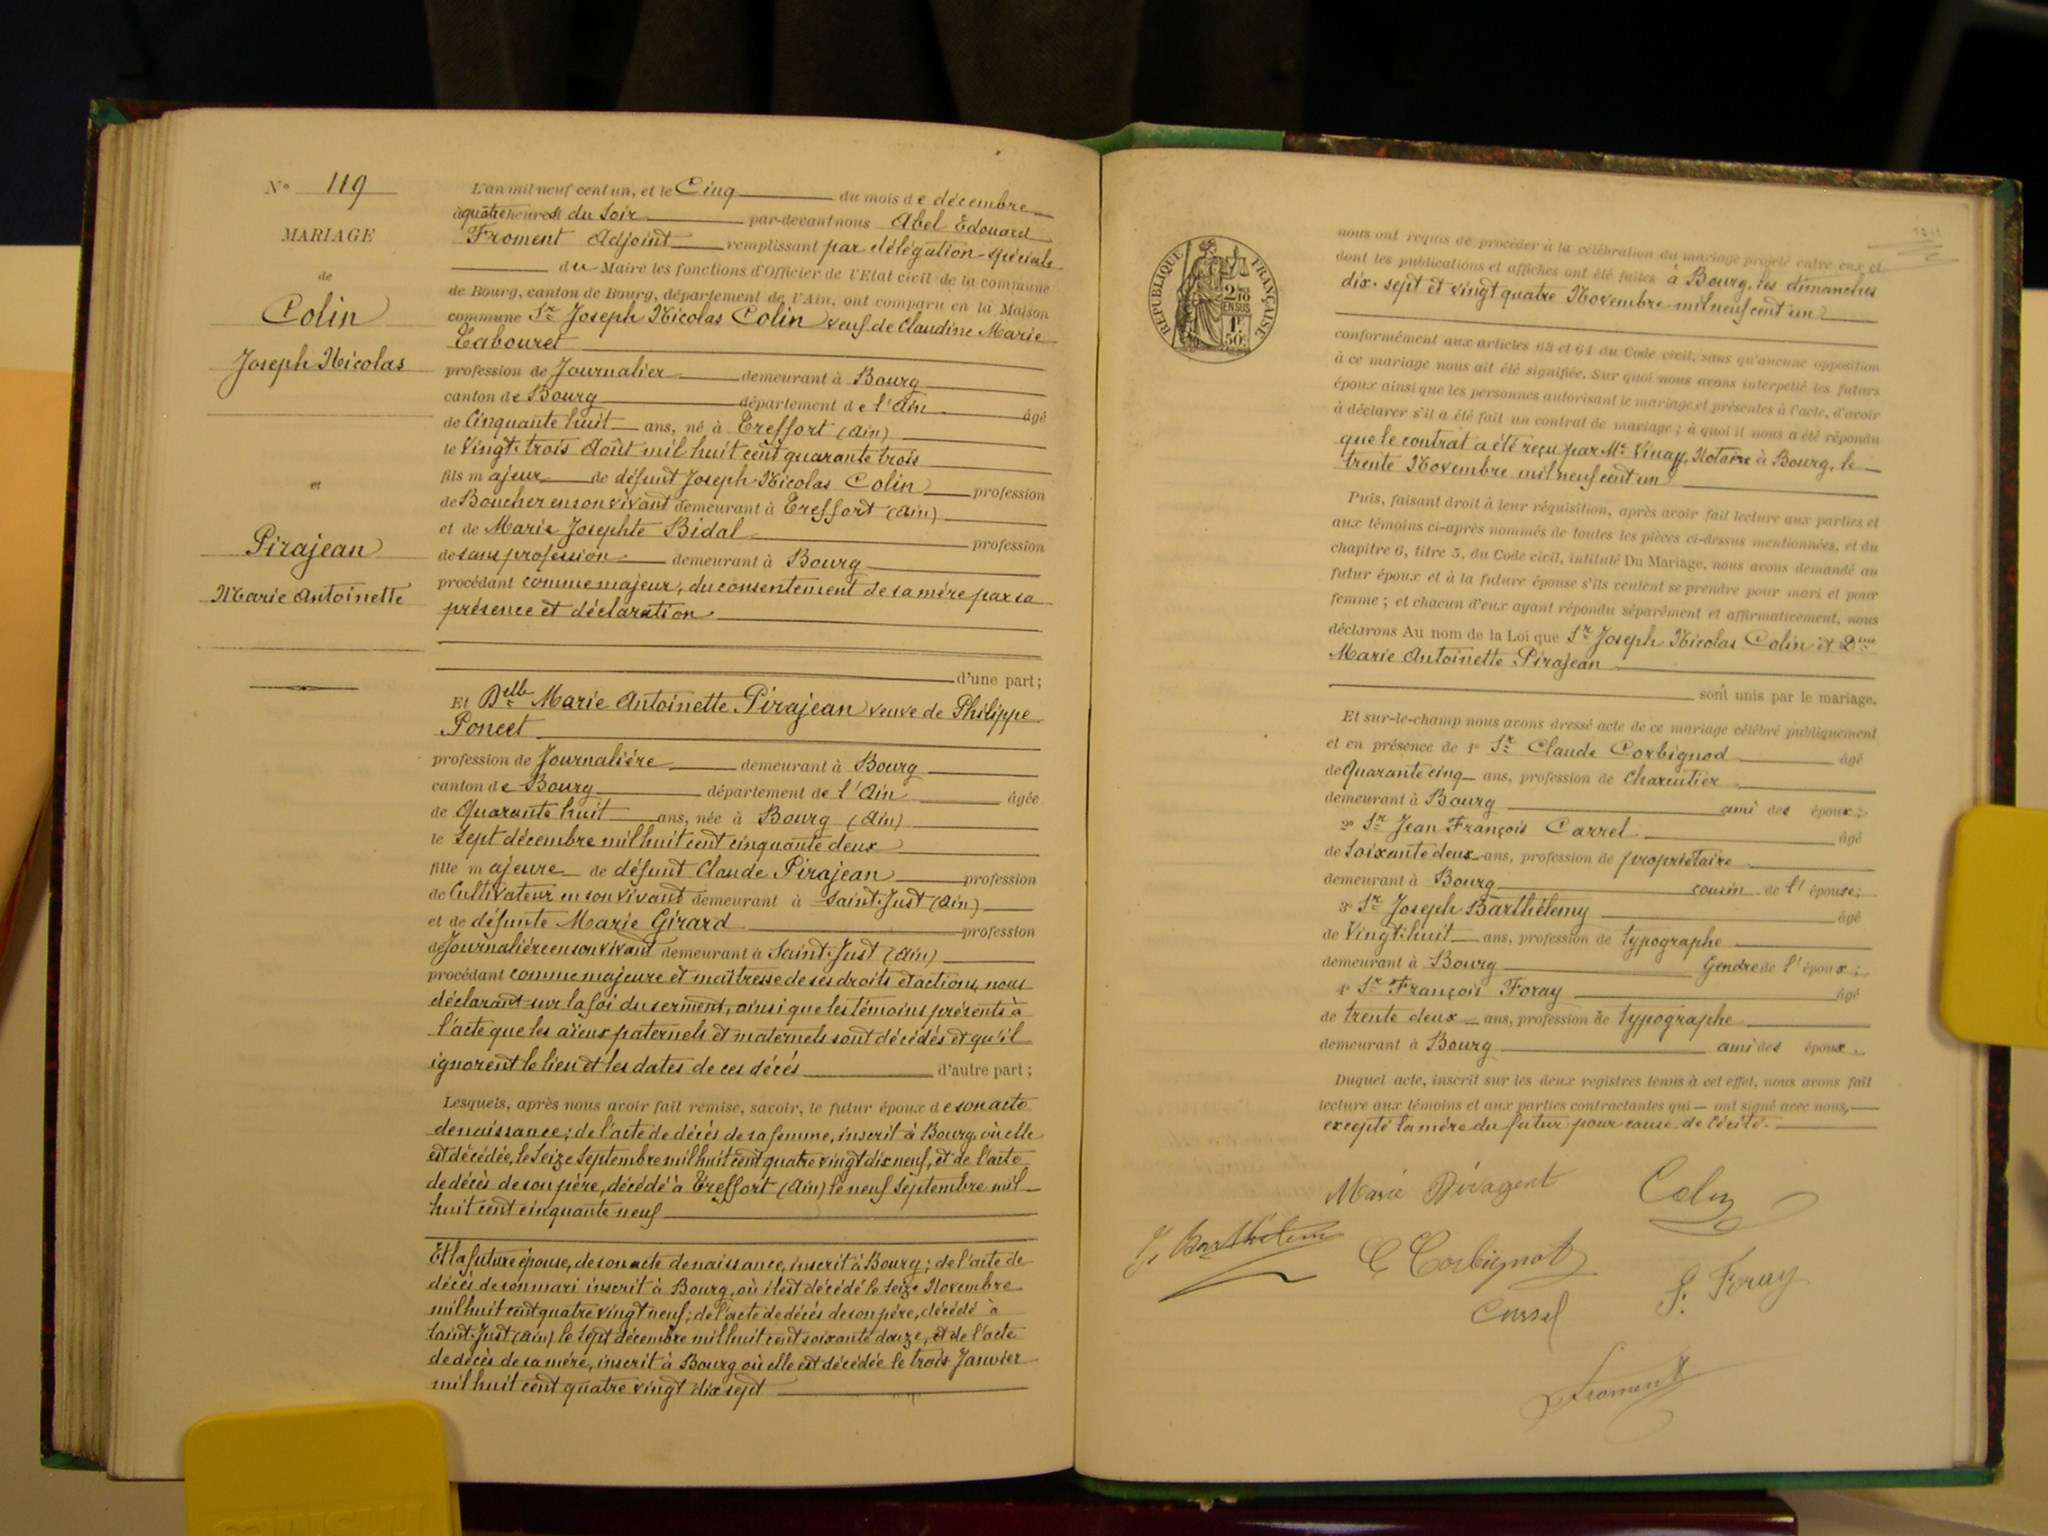 N° 119
MARIAGE
de
Colin
Joseph Nicolas
et
Pirajean
Marie Antoinette
L'an mil neuf cent un, et le Cinq du mois de décembre
à quatre heures du soir par-devant nous Abel Edouard
Froment Adjoint remplissant par délégation spéciale
du Maire les fonctions d'Officier de l'Etat civil de la commune
de Bourg, canton de Bourg, département de l'Ain, ont comparu en la Maison
commune Sr Joseph Nicolas Colin veuf de Claudine Marie
Tabouret
profession de Journalier demeurant à Bourg
canton de Bourg département de l'Ain âgé
de Cinquante huit ans, né à Treffort (Ain)
le vingt-trois Août mil huit cent quarante trois
fils majeur de défunt Joseph Nicolas Colin profession
de Boucher en son vivant demeurant à Treffort (Ain)
et de Marie Josephte Bidal profession
de sans profession demeurant à Bourg
procédant comme majeur, du consentement de sa mère par sa
présence et déclaration
d'une part;
Et Delle Marie Antoinette Pirajean veuve de Philippe
Poncet
profession de Journalière demeurant à Bourg
canton de Bourg département de l'Ain âgée
de Quarante huit ans, née à Bourg (Ain)
le Sept décembre mil huit cent cinquante deux
fille majeure de défunt Claude Pirajean profession
de Cultivateur en son vivant demeurant à Saint-Just (Ain)
et de défunte Marie Girard profession
de Journalière en son vivant demeurant à Saint-Just (Ain)
procédant comme majeure et maîtresse de ses droits et actions, nous
déclarant sur la foi du serment, ainsi que les témoins présents à
l'acte que les aïeux paternels et maternels sont décédés et qu'il
ignorent le lieu et les dates de ces décés d'autre part;
Lesquels, après nous avoir fait remise, savoir, le futur époux de son acte
de naissance; de l'acte de décès de sa femme, inscrit à Bourg, où elle
est décédée, le Seize Septembre mil huit cent quatre vingt dix neuf, et de l'acte
de décès de son père, décédé à Treffort (Ain) le neuf Septembre mil
huit cent cinquante neuf
Et la future épouse, de son acte de naissance, inscrit à Bourg; de l'acte de
décès de son mari inscrit à Bourg, où il est décédé le seize Novembre
mil huit cent quatre vingt neuf; de l'acte de décès de son père, décédé à
Saint-Just (Ain) le Sept décembre mil huit cent soixante douze, et de l'acte
de décès de sa mère, inscrit à Bourg où elle est décédée le trois Janvier
mil huit cent quatre vingt dix sept
RÉPUBLIQUE FRANÇAISE
2/10
EN SUS
1F
50c
nous ont requis de procéder à la célébration du mariage projeté entre eux et
dont les publications et affiches ont été faites à Bourg, les dimanches
dix-sept et vingt quatre Novembre mil neuf cent un
conformément aux articles 63 et 64 du Code civil, sans qu'aucune opposition
à ce mariage nous ait été signifiée. Sur quoi nous avons interpellé les futurs
époux ainsi que les personnes autorisant le mariage et présentes à l'acte, d'avoir
à déclarer s'il a été fait un contrat de mariage; à quoi il nous a été répondu
que le contrat a été reçu par Me Vinay, Notaire à Bourg, le
trente Novembre mil neuf cent un
Puis, faisant droit à leur réquisition, après avoir fait lecture aux parties et
aux témoins ci-après nommés de toutes les pièces ci-dessus mentionnées, et du
chapitre 6, titre 5, du Code civil, intitulé Du Mariage, nous avons demandé au
futur époux et à la future épouse s'ils veulent se prendre pour mari et pour
femme; et chacun d'eux ayant répondu séparément et affirmativement, nous
déclarons Au nom de la Loi que Sr Joseph Nicolas Colin et Dme
Marie Antoinette Pirajean
sont unis par le mariage.
Et sur-le-champ nous avons dressé acte de ce mariage célébré publiquement
et en présence de 1° Sr Claude Corbignod âgé
de Quarante cinq ans, profession de Charcutier
demeurant à Bourg ami des époux;
2° Sr Jean François Carrel âgé
de Soixante deux ans, profession de propriétaire
demeurant à Bourg cousin de l'épouse;
3° Sr Joseph Barthélemy âgé
de Vingt-huit ans, profession de typographe
demeurant à Bourg Gendre de l'époux;
4° Sr François Foray âgé
de trente deux ans, profession de typographe
demeurant à Bourg ami des époux.
Duquel acte, inscrit sur les deux registres tenus à cet effet, nous avons fait
lecture aux témoins et aux parties contractantes qui ont signé avec nous,
excepté la mère du futur pour cause de Cécité.
Marie Colin
J. Barthélemy C Corbignot F. Foray
Carrel
Froment